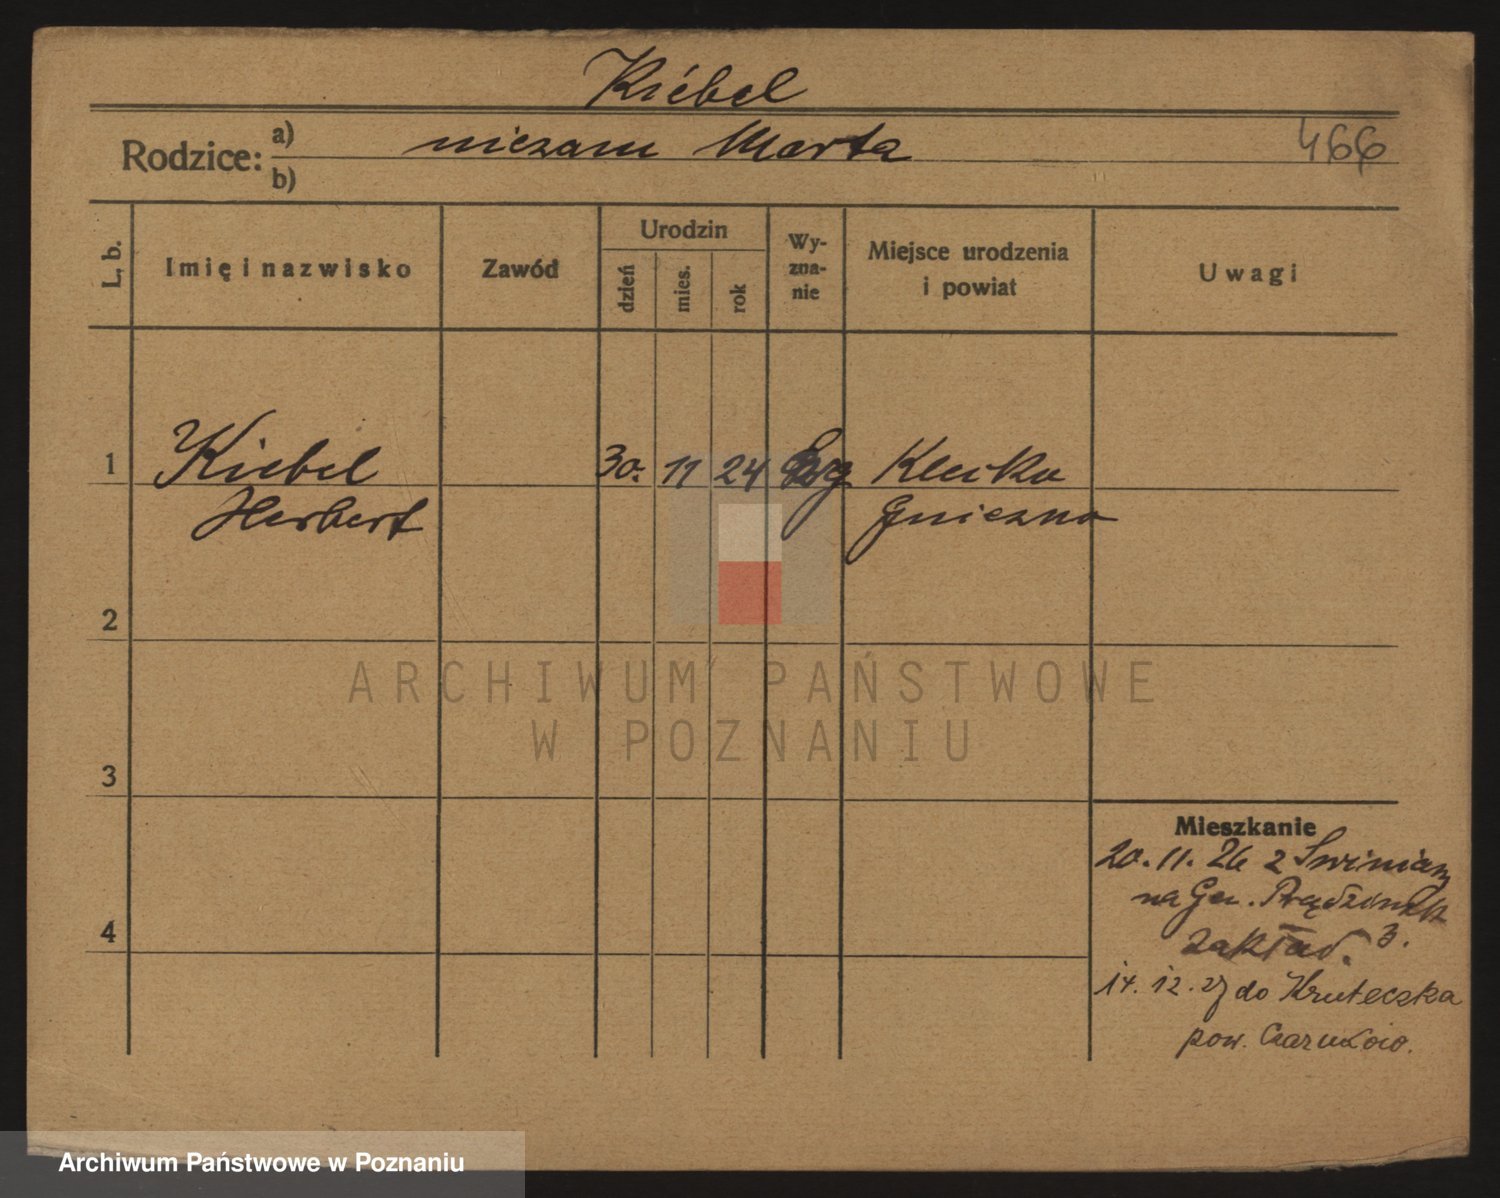 Kiebel
Rodzice: a) niezam Marta
466
b)
L. b.
Imię i nazwisko
Zawód
Urodzin
dzień
mies.
rok
Wy-
zna-
nie
Miejsce urodzenia
i powiat
Uwagi
1 Kiebel 30. 11 24 Kleck
Herbert Gniezno
2
3
4
Mieszkanie
20. 11. 26 z
na Gen. Prądzyńsk
zakład. 3.
14. 12. 27 do Kruteczka
pow. Czarnków.
ARCHIWUM PAŃSTWOWE
W POZNANIU
Archiwum Państwowe w Poznaniu